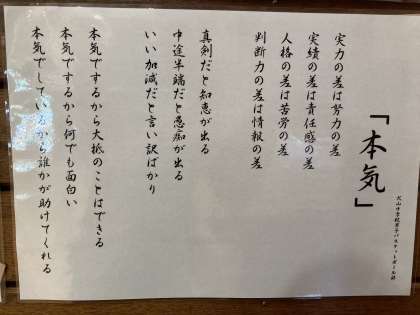 「本気」
犬山中学校男子バスケットボール部
実力の差は努力の差
実績の差は責任感の差
人格の差は苦労の差
判断力の差は情報の差
真剣だと知恵が出る
中途半端だと愚痴が出る
いい加減だと言い訳ばかり
本気でするから大抵のことはできる
本気でするから何でも面白い
本気でしているから誰かが助けてくれる